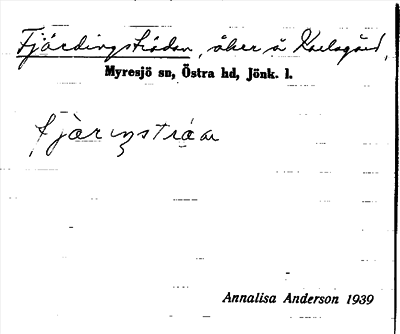 Fjärdingsträdan, åker å Karlsgård,
Myresjö sn, Östra hd, Jönk. l.
fjäriŋstráa
Annalisa Anderson 1939